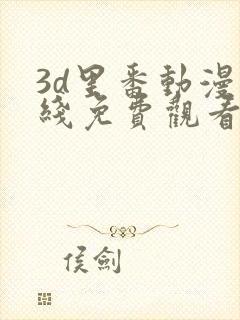 3d里番動漫
綫免費觀看
侯劍